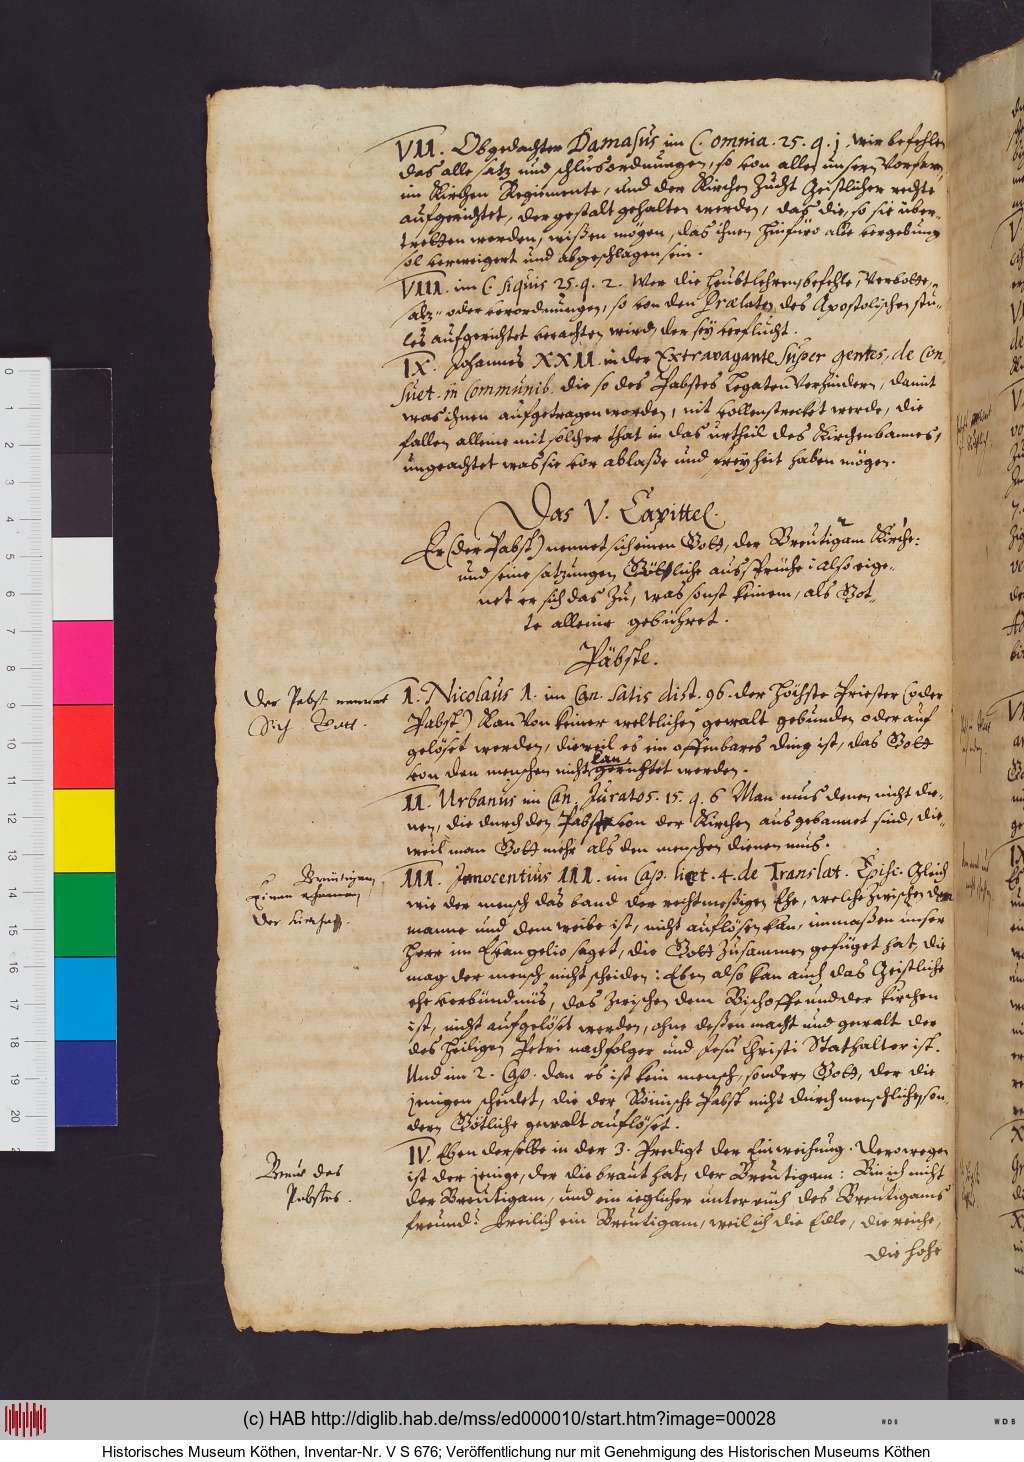 VII. Obgedachter Damasus im C. omnia. 25. q. j. wir befehlen
das alle satz und schlusordnungen, so von allen unsern Vorfarn,
im Kirchen Regimente, und der Kirchen Zucht Geistlicher rechte
aufgerichtet, der gestalt gehalten werden, das die, so sie über-
tretten werden, wißen mögen, das ihnen hinfüro alle vergebung
sol verweigert und abgeschlagen sein.
VIII. im C. siquis 25. q. 2. Wer die heubtlehren, befehle, Verbotte,
satz- oder verordnungen, so von den Prælaten des Apostolischen stu-
les aufgerichtet verachten wird, der sey verflucht.
IX. Johannes XXII. in der Extravagante super gentes, de Con
suet. in communib. die so des Pabstes Legaten Verhindern, damit
was ihnen aufgetragen worden, nit vollenstrecket werde, die
fallen alleine mit solcher that in das urtheil des Kirchenbannes,
ungeachtet was sie vor ablaße und freyheit haben mögen.
Das V. Capittel.
Er (der Pabst) nennet sich einen Gott, der Breutigam Kirche:
und seine satzungen Göttliche aussprüche: also eige-
net er sich das Zu, was sonst keinem, als Got-
te alleine gebühret.
Päbste.
Der Pabst nennet
Sich Gott.
I. Nicolaus I. im Can. satis dist. 96. der Höchste Priester (oder
Pabst) Kan Von keiner weltlichen gewalt gebunden oder auf
gelöset werden, dieweil es ein offenbares ding ist, das Gott
kan
von den menschen nicht gerichtet werden.
II. Urbanus im Can. Juratos. 15. q. 6 Man mus denen nicht die-
nen, die durch den Pabst von der Kirchen ausgebannet sind, die-
weil man Gott mehr als den menschen dienen mus.
Breutigam
Einen
der kirchen.
III. Innocentius III. im Cap. licet. 4. de Translat. Episc. Gleich
wie der mensch das band der rechtmeßigen Ehe, welche Zwischen dem
manne und dem weibe ist, nicht auflösen kan, inmaßen unser
Herr im Evangelio saget, die Gott Zusammen gefüget hat, die
mag der mensch nicht scheiden: Eben also kan auch das Geistliche
ehe verbündnüs, das Zwischen dem Bischoffe und der kirchen
ist, nicht aufgelöset werden, ohne deßen macht und gewalt der
des heiligen Petri nachfolger und Jesu Christi Stathalter ist.
Und im 2. Cap. dan es ist kein mensch, sondern Gott, der die
jenigen scheidet, die der Römische Pabst nicht durch menschliche, son-
dern Götliche gewalt auflöset.
Braut des
Pabstes.
IV. Eben derselbe in der 3. Predigt der Einweihung. Derowegen
ist der jenige, der die braut hat, der Breutigam: Bin ich nicht
der Breutigam, und ein ieglicher unter euch des Breutigams
freund? freilich ein Breutigam, weil ich die Edle, die reiche,
die hohe
(c) HAB http://diglib.hab.de/mss/ed000010/start.htm?image=00028
WDB
WDB
Historisches Museum Köthen, Inventar-Nr. V S 676; Veröffentlichung nur mit Genehmigung des Historischen Museums Köthen